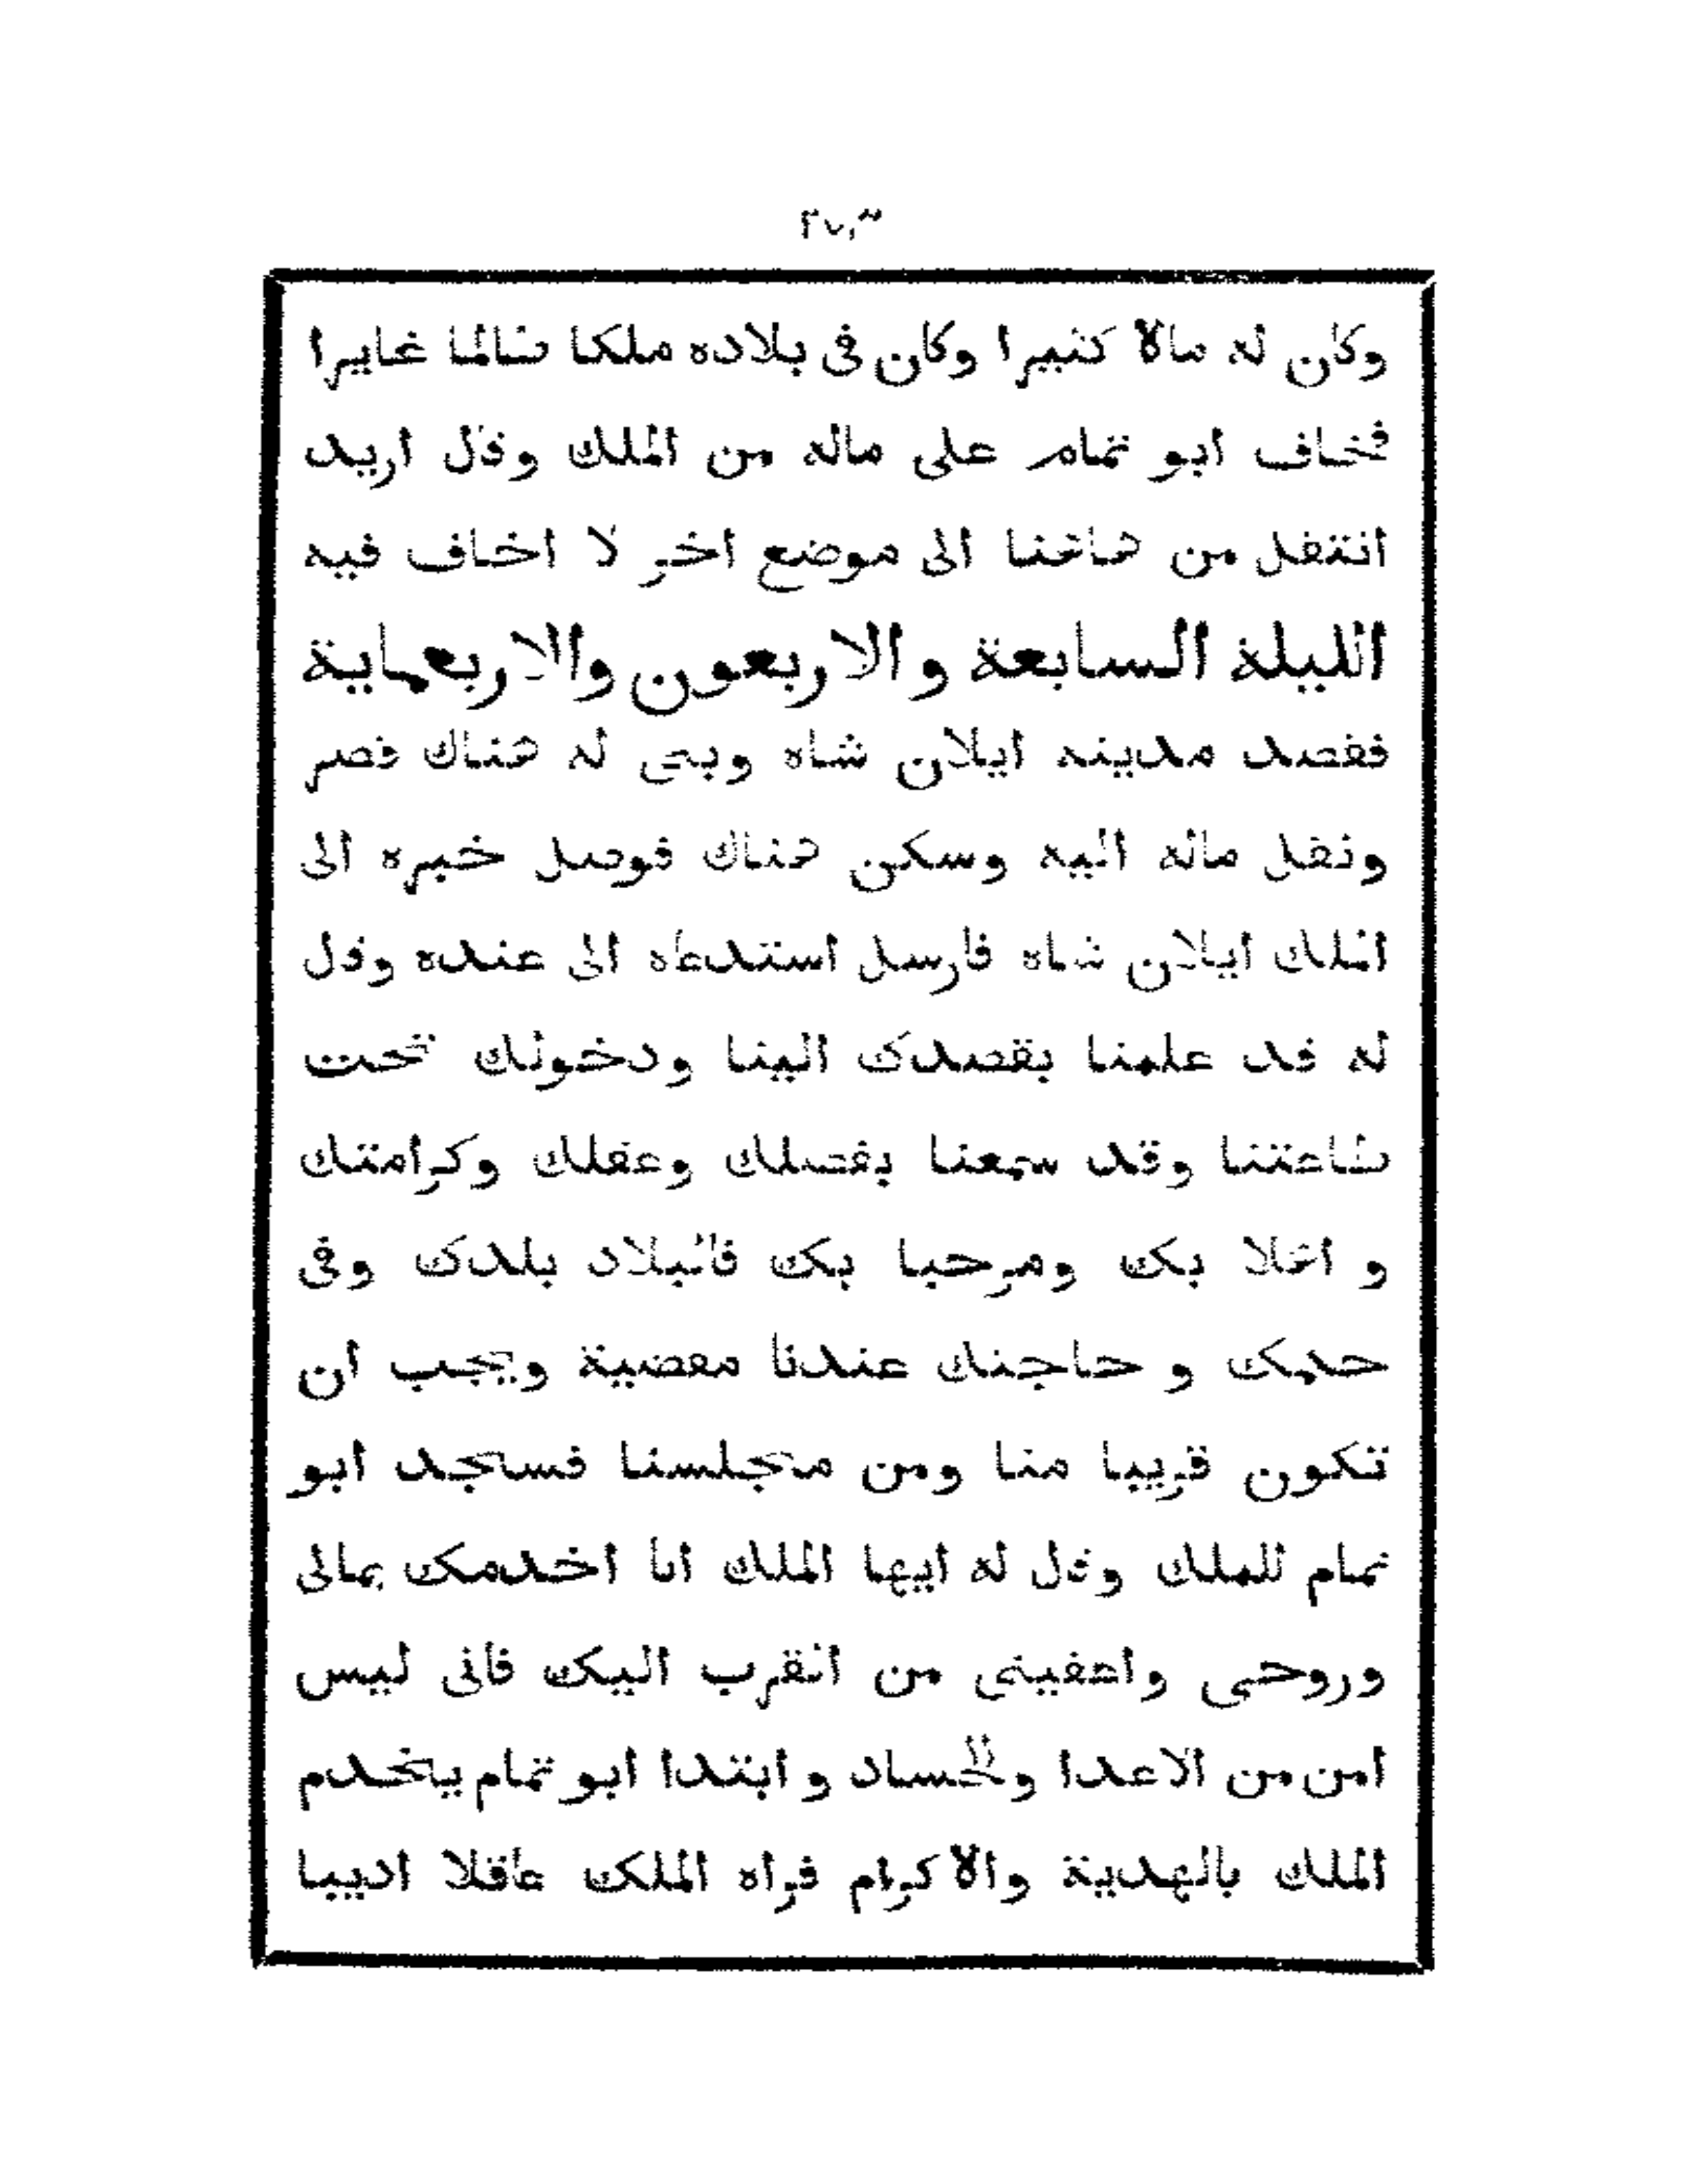 ٢٧٣
وكان له مالا كثيرا وكان فى بلاده ملكا ظالما غايرا
فخاف ابو تمام على ماله من الملك وقال اريد
انتقل من هاهنا الى موضع اخر لا اخاف فيه
الليلة السابعة والاربعون والاربعماية
فقصد مدينه ايلان شاه وبنى له هناك قصر
ونقل ماله اليه وسكن هناك فوصل خبره الى
الملك ايلان شاه فارسل استدعاه الى عنده وقال
له قد علمنا بقصدك الينا ودخولك تحت
طاعتنا وقد سمعنا بفضلك وعقلك وكرامتك
و اهلا بك ومرحبا بك فالبلاد بلدك وفى
حكمك و حاجتك عندنا مقضية ويجب ان
تكون قريبا منا ومن مجلسنا فسجد ابو
تمام للملك وقال له ايها الملك انا اخدمك بمالى
وروحى واعفينى من القرب اليك فانى ليس
امن من الاعدا والحساد و ابتدا ابو تمام يخدم
الملك بالهدية والاكرام فراه الملك عاقلا اديبا